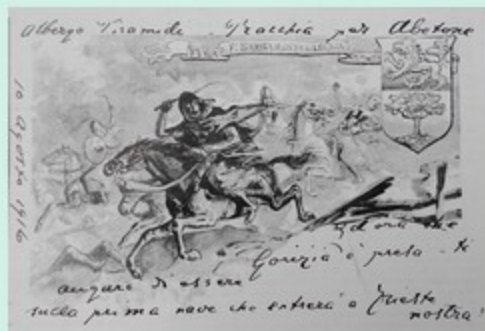 Albergo Piramidi Pracchia per Abetone
10 Agosto 1916
ed ora che
Gorizia è presa - ti
auguro di essere
sulla prima nave che entrerà a Trieste
nostra!